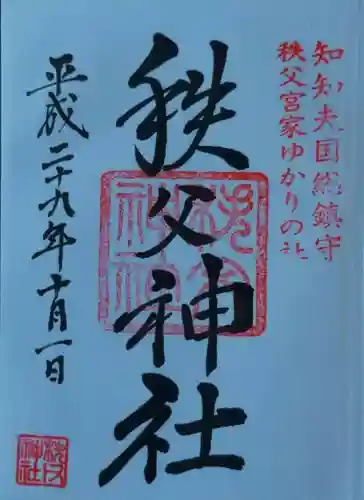 知知夫国総鎮守
秩父宮家ゆかりの社
秩父神社
平成二十九年十月一日
秩父神社
秩父神社